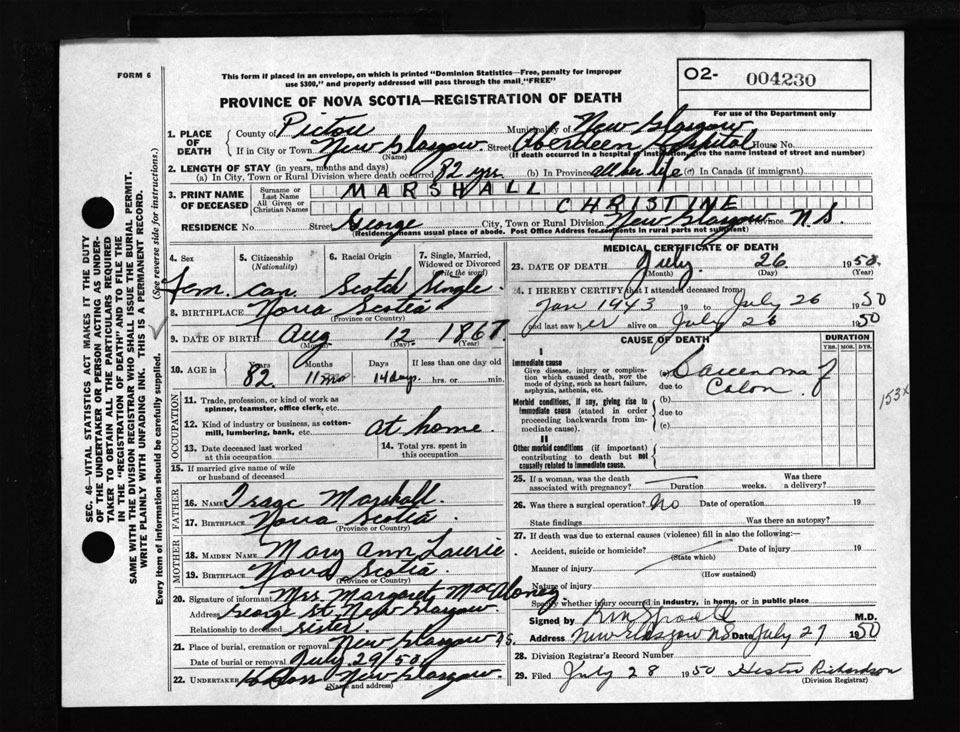 FORM 6
This form if placed in an envelope, on which is printed "Dominion Statistics—Free, penalty for improper
use $300," and properly addressed will pass through the mail "FREE"
O2- 004230
PROVINCE OF NOVA SCOTIA—REGISTRATION OF DEATH
For use of the Department only
1. PLACE OF DEATH
County of Pictou Municipality of New Glasgow
If in City or Town New Glasgow (Name) Street Aberdeen Hospital House No.
(If death occurred in a hospital or institution, give the name instead of street and number)
2. LENGTH OF STAY (in years, months and days)
(a) In City, Town or Rural Division where death occurred 82 yrs. (b) In Province all her life (c) In Canada (if immigrant)
3. PRINT NAME OF DECEASED
Surname or Last Name MARSHALL
All Given or Christian Names CHRISTINE
RESIDENCE No. Street George City, Town or Rural Division New Glasgow Province N.S.
(Residence means usual place of abode. Post Office Address for residents in rural parts not sufficient)
4. Sex
Fem.
5. Citizenship (Nationality)
Can.
6. Racial Origin
Scotch
7. Single, Married, Widowed or Divorced (write the word)
Single.
8. BIRTHPLACE Nova Scotia
(Province or Country)
9. DATE OF BIRTH Aug 12 1867
(Month) (Day) (Year)
10. AGE in Years Months Days If less than one day old
82 11 mo 14 days hrs. or min.
OCCUPATION
11. Trade, profession, or kind of work as
spinner, teamster, office clerk, etc.
12. Kind of industry or business, as cotton-
mill, lumbering, bank, etc. at home.
13. Date deceased last worked
at this occupation
14. Total yrs. spent in
this occupation
15. If married give name of wife
or husband of deceased
FATHER
16. NAME Isaac Marshall.
17. BIRTHPLACE Nova Scotia.
(Province or Country)
MOTHER
18. MAIDEN NAME Mary Ann Laurie
19. BIRTHPLACE Nova Scotia.
(Province or Country)
20. Signature of informant Mrs. Margaret MacAloney
Address George St. New Glasgow
Relationship to deceased Sister
21. Place of burial, cremation or removal New Glasgow N.S.
Date of burial or removal July 29/50
22. UNDERTAKER New Glasgow.
(Name and address)
MEDICAL CERTIFICATE OF DEATH
23. DATE OF DEATH July 26 1950.
(Month) (Day) (Year)
24. I HEREBY CERTIFY that I attended deceased from
Jan 1943 19 to July 26 1950
and last saw her alive on July 26 1950
CAUSE OF DEATH
DURATION
YRS. MOS. DYS.
I
Immediate cause
Give disease, injury or complica-
tion which caused death, not the
mode of dying, such as heart failure,
asphyxia, asthenia, etc.
(a) Carcinoma of
due to Colon.
153X
Morbid conditions, if any, giving rise to
immediate cause (stated in order
proceeding backwards from im-
mediate cause).
(b)
due to
(c)
II
Other morbid conditions (if important)
contributing to death but not
causally related to immediate cause.
25. If a woman, was the death
associated with pregnancy? Duration weeks. Was there
a delivery?
26. Was there a surgical operation? No Date of operation 19
State findings Was there an autopsy?
27. If death was due to external causes (violence) fill in also the following:—
Accident, suicide or homicide? Date of injury 19
(State which)
Manner of injury
(How sustained)
Nature of injury
Specify whether injury occurred in industry, in home, or in public place
Signed by M.D.
Address New Glasgow NS Date July 27 1950
28. Division Registrar's Record Number
29. Filed July 28 1950 Hester Richardson
(Division Registrar)
SEC. 46—VITAL STATISTICS ACT MAKES IT THE DUTY
OF THE UNDERTAKER OR PERSON ACTING AS UNDER-
TAKER TO OBTAIN ALL THE PARTICULARS REQUIRED
IN THE "REGISTRATION OF DEATH" AND TO FILE THE
SAME WITH THE DIVISION REGISTRAR WHO SHALL ISSUE THE BURIAL PERMIT.
WRITE PLAINLY WITH UNFADING INK. THIS IS A PERMANENT RECORD.
Every item of information should be carefully supplied. (See reverse side for instructions.)